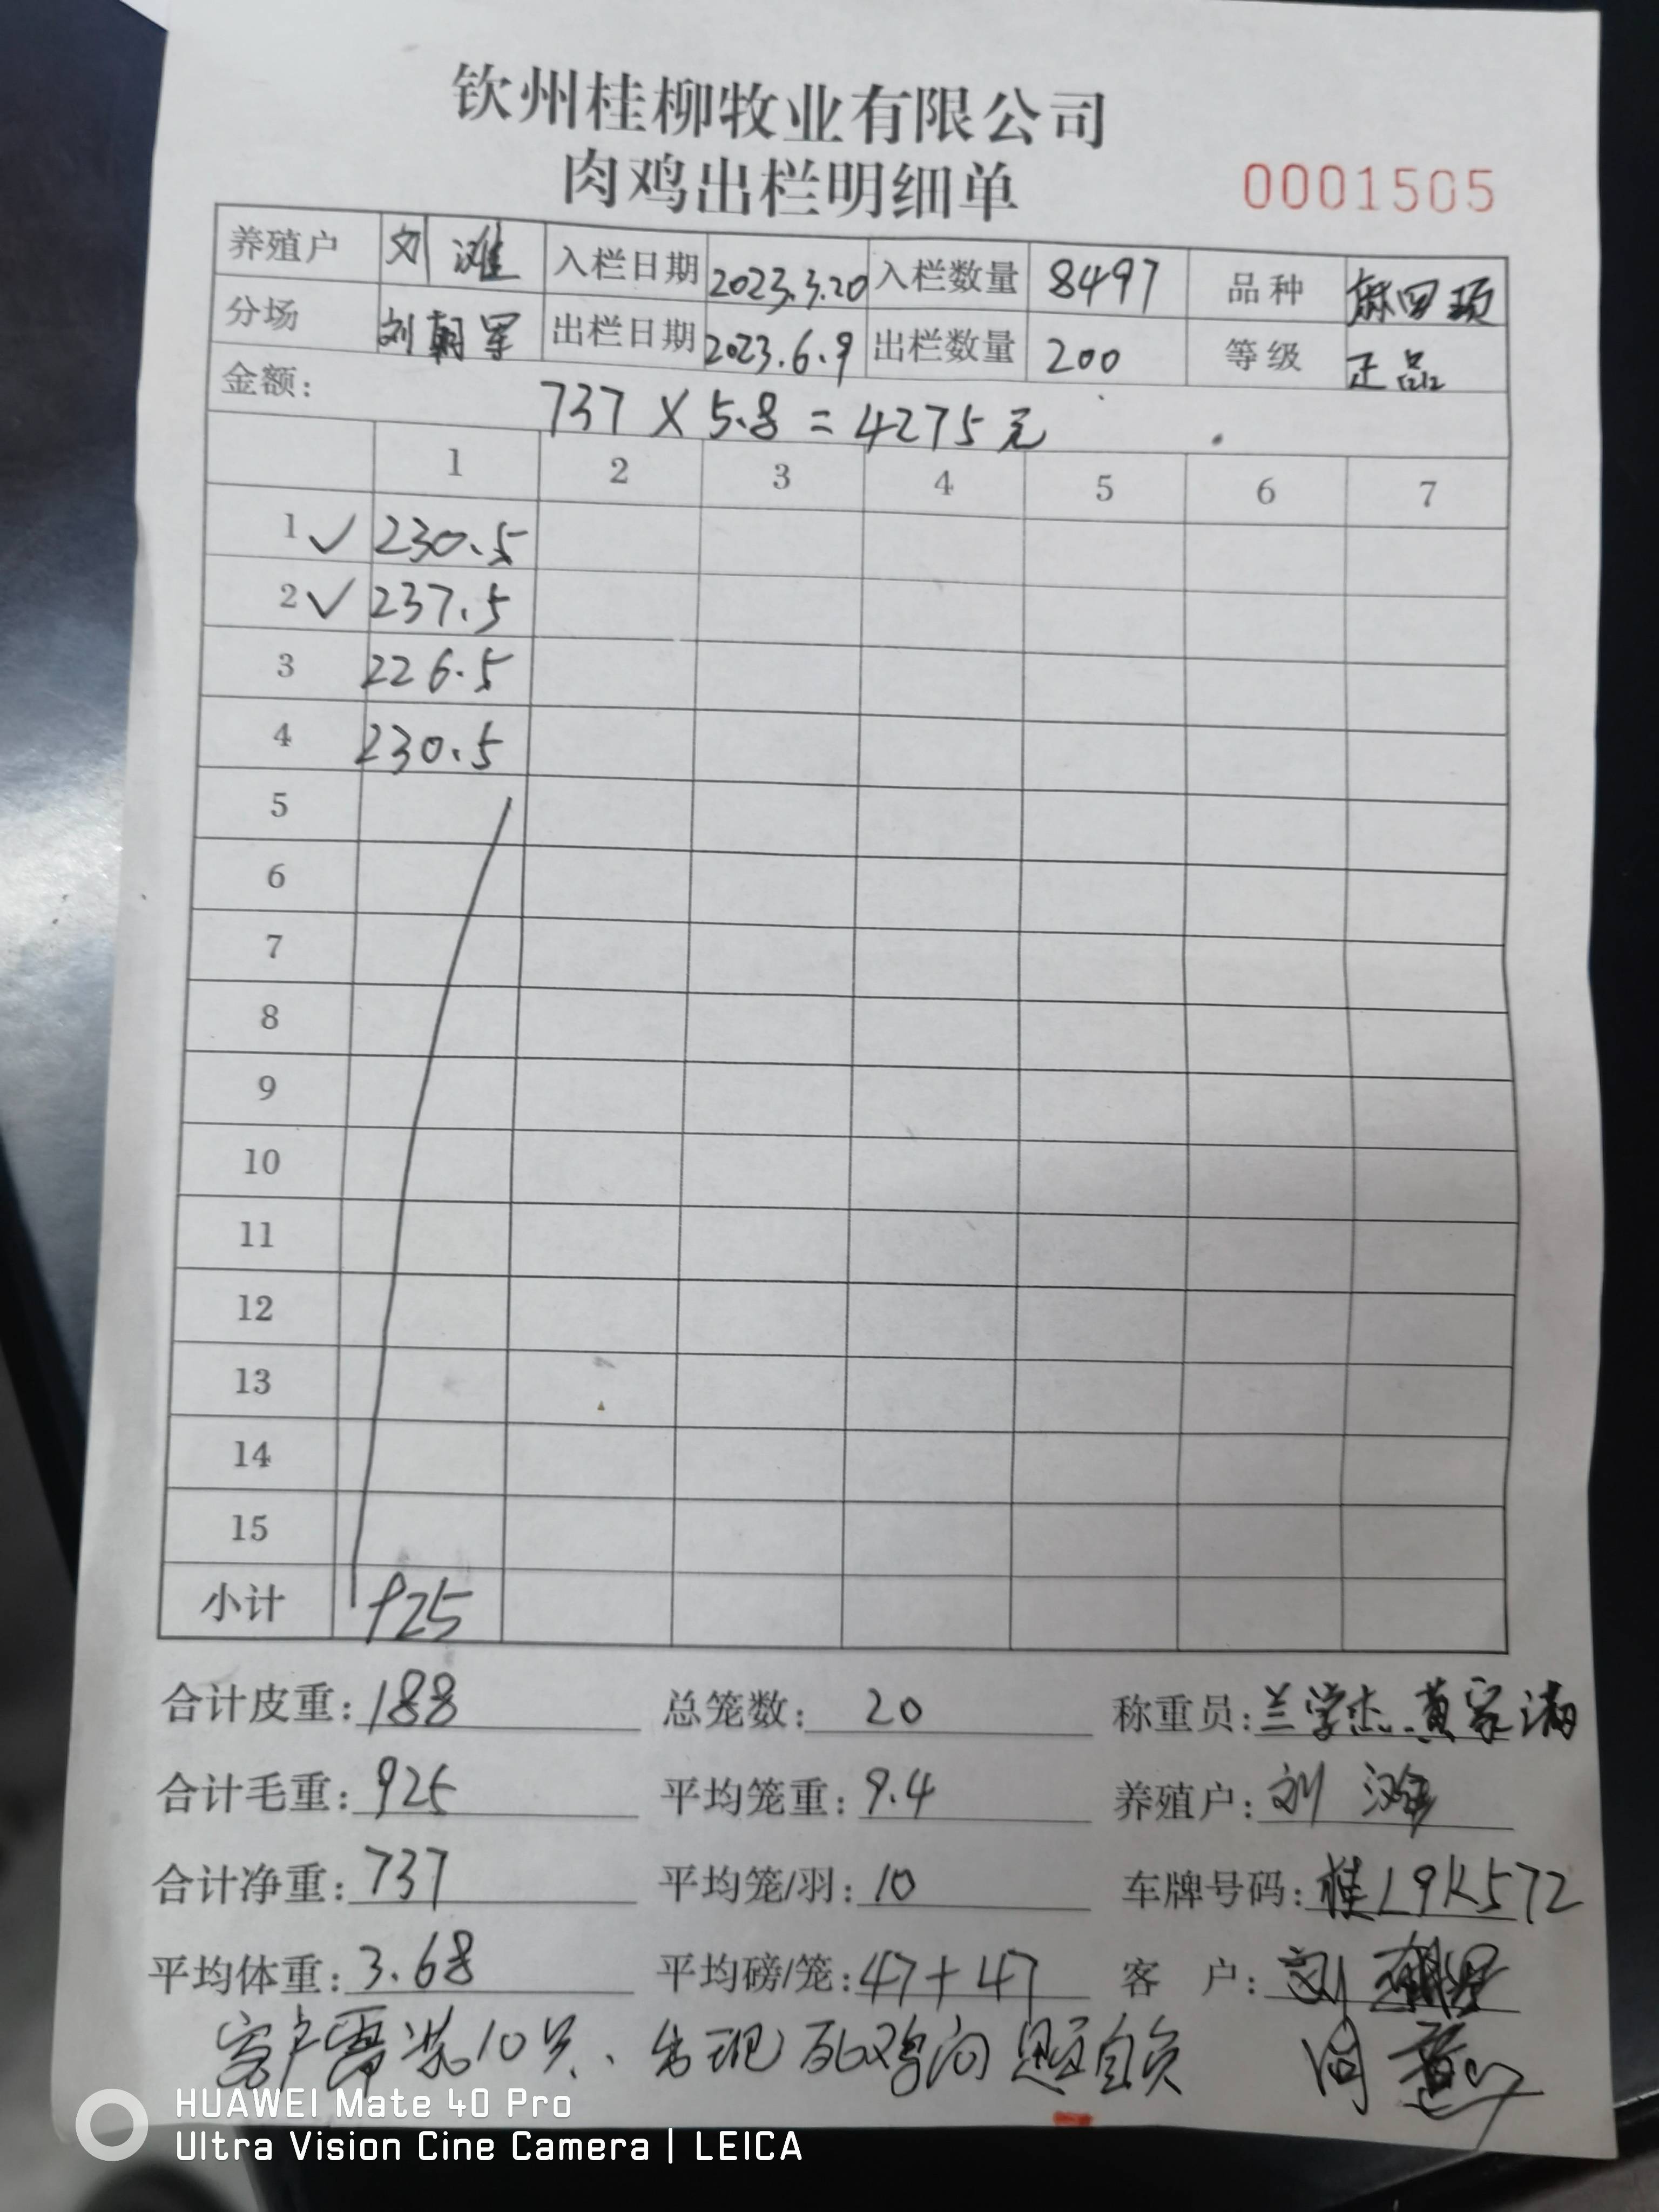 钦州桂柳牧业有限公司
肉鸡出栏明细单
0001505
养殖户 刘 滩 入栏日期 2023.3.20 入栏数量 8497 品种 麻四项
分场 刘朝军 出栏日期 2023.6.9 出栏数量 200 等级 正品
金额: 737 × 5.8 = 4275元
1 2 3 4 5 6 7
1 ✓ 230.5
2 ✓ 237.5
3 226.5
4 230.5
5
6
7
8
9
10
11
12
13
14
15
小计 925
合计皮重: 188 总笼数: 20 称重员: 兰学杰.黄家满
合计毛重: 925 平均笼重: 9.4 养殖户: 刘
合计净重: 737 平均笼/羽: 10 车牌号码: 桂L9K572
平均体重: 3.68 平均磅/笼: 47+47 客 户: 刘
客户需装10只、出现死鸡问题自负
HUAWEI Mate 40 Pro
Ultra Vision Cine Camera | LEICA